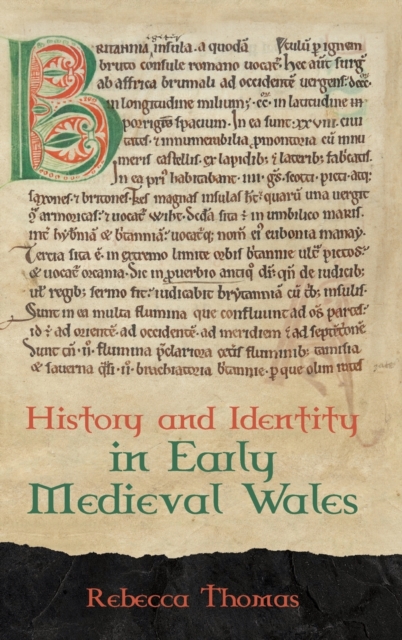 BRITANNIA insula a quodā
bruto consule romano uocat᷒ hec aut surg᷒
ab affrica brumali ad occidentē uergens
in longitudine milium in latitudine
spacium. In ea sunt xxviii. ciui
tates & innumerabilia pmontoria cū innu
meris castellis ex lapidib; & laterib; fabcatis.
In ea habitabant iiii scotti picti atq;
saxones & britones magnas insulas quarū una uergit
armoricas & uocat sita in umbilico maris
& uocat eubonia manay.
Tercia sita ē in extremo limite orbis bṙtannie ultͣ pictos
& uocat orcania Sic in puerbio antiq̄ dr̄ qn̄ de iudicib;
regib; sermo iudicabit brytanniā cū insulis.
Sunt in ea multa flumina que confluunt ad partes
ad orientē ad occidentē ad meridiem ad septētrionē
Sunt flumina pclariora fluminib; tamisia
& sauerna brachia bṙtannie p que olim rates
History and Identity
in Early
Medieval Wales
Rebecca Thomas